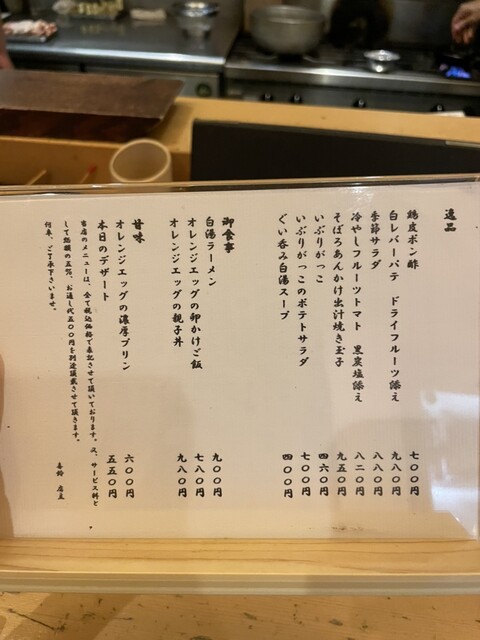 逸品
鶏皮ポン酢 七〇〇円
白レバーパテ ドライフルーツ添え 九八〇円
季節サラダ 八八〇円
冷やしフルーツトマト 黒炭塩添え 八二〇円
そぼろあんかけ出汁焼き玉子 九五〇円
いぶりがっこ 四六〇円
いぶりがっこのポテトサラダ 七〇〇円
ぐい呑み白湯スープ 四〇〇円
御食事
白湯ラーメン 九〇〇円
オレンジエッグの卵かけご飯 七八〇円
オレンジエッグの親子丼 九八〇円
甘味
オレンジエッグの濃厚プリン 六〇〇円
本日のデザート 五五〇円
当店のメニューは、全て税込価格で表記させて頂いております。又、サービス料と
して総額の五％、お通し代五〇〇円を別途頂戴させて頂きます。
何卒、ご了承下さいませ。
店主